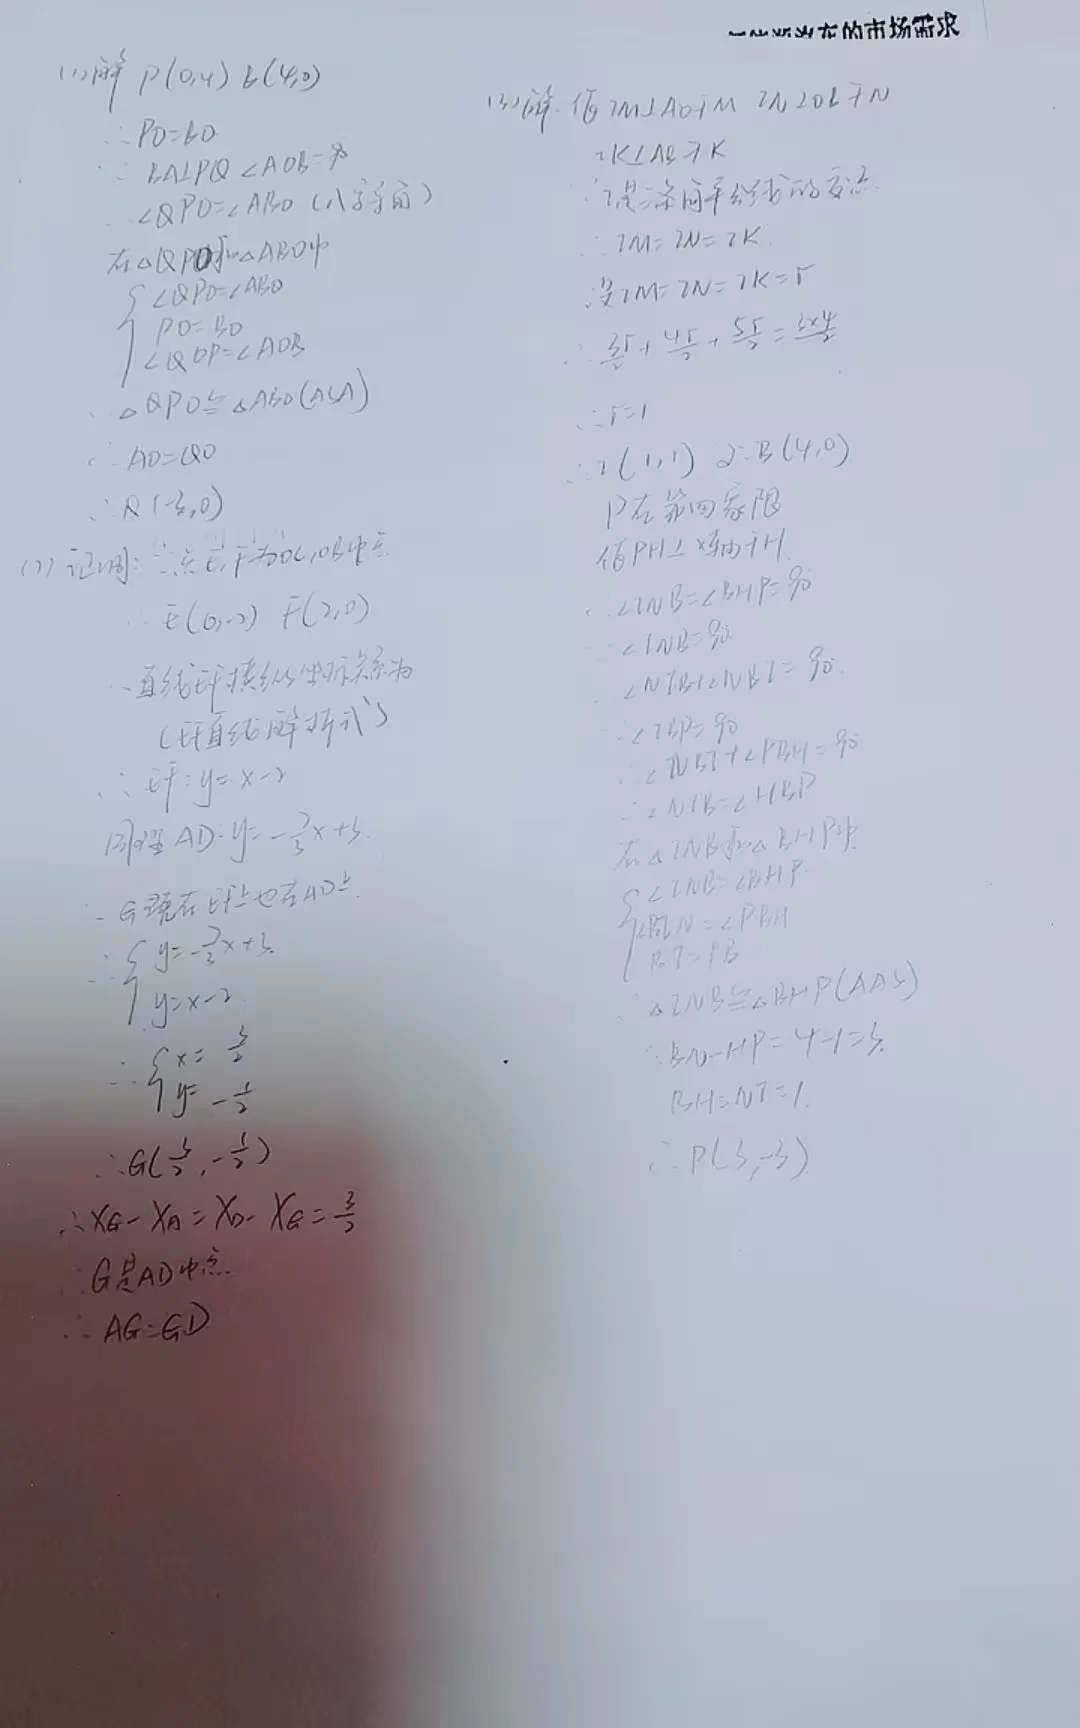 的市场需求
(1)解 P(0,4) B(4,0)
∴PO=BO
∵BA⊥PQ ∠AOB=90
∠QPO=∠ABO(八字导角)
在△QPO和△ABO中
∠QPO=∠ABO
PO=BO
∠QOP=∠AOB
∴△QPO≌△ABO(ASA)
∴AO=QO
∴Q(-3,0)
(2)证明:∵点E,F为OC,OB中点
∴E(0,-2) F(2,0)
∴直线EF横纵坐标关系为
(EF直线解析式)
∴EF:y=x-2
同理AD:y=-7/3x+3
∵G既在EF上也在AD上
∴y=-7/3x+3
y=x-2
∴x=3/2
y=-1/2
∴G(3/2,-1/2)
∴XG-XA=XD-XG=3/2
∴G是AD中点
∴AG=GD
(3)解:作IM⊥AO于M IN⊥OB于N
IK⊥AB于K
∵I是三条角平分线的交点
∴IM=IN=IK
设IM=IN=IK=r
∴3r/2+4r/2+5r/2=3×4/2
∴r=1
∴I(1,1) ∵B(4,0)
P在第四象限
作PH⊥x轴于H
∴∠INB=∠BHP=90
∵∠INB=90
∠NIB+∠NBI=90
∵∠IBP=90
∴∠NBI+∠PBH=90
∴∠NIB=∠HBP
在△INB和△BHP中
∠INB=∠BHP
∠BIN=∠PBH
BI=PB
∴△INB≌△BHP(AAS)
∴BN=HP=4-1=3
BH=NI=1
∴P(3,-3)